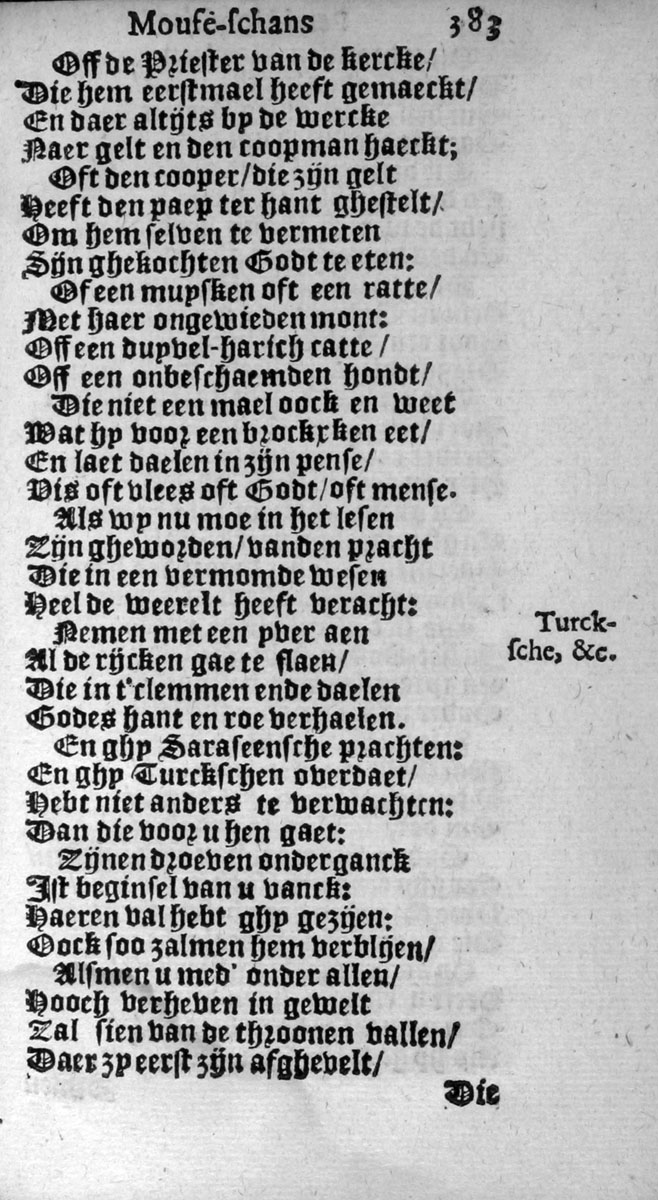 Moufe-ſchans 383
Off de Prieſter van de kercke/
Die hem eerſtmael heeft gemaeckt/
En daer altijts by de wercke
Naer gelt en den coopman haeckt;
Oft den cooper/die zijn gelt
Heeft den paep ter hant gheſtelt/
Om hem ſelven te vermeten
Sijn ghekochten Godt te eten:
Of een muyſken oft een ratte/
Met haer ongewieden mont:
Off een duyvel-harich catte /
Off een onbeſchaemden hondt/
Die niet een mael oock en weet
Wat hy voor een brockxken eet/
En laet daelen in zijn penſe/
Vis oft vlees oft Godt/oft menſe.
Als wy nu moe in het leſen
Zijn gheworden/vanden pracht
Die in een vermomde weſen
Heel de weerelt heeft veracht:
Nemen met een yver aen
Al de rijcken gae te ſlaen/
Die in t'clemmen ende daelen
Godes hant en roe verhaelen.
En ghy Saraſeenſche prachten:
En ghy Turckſchen overdaet/
Hebt niet anders te verwachten:
Dan die voor u hen gaet:
Zijnen droeven onderganck
Iſt beginſel van u vanck:
Haeren val hebt ghy gezijen:
Oock ſoo zalmen hem verblijen/
Alſmen u med' onder allen/
Hooch verheven in gewelt
Zal ſien van de throonen vallen/
Daer zy eerſt zijn afghevelt/
Die
Turck-
ſche, &c.